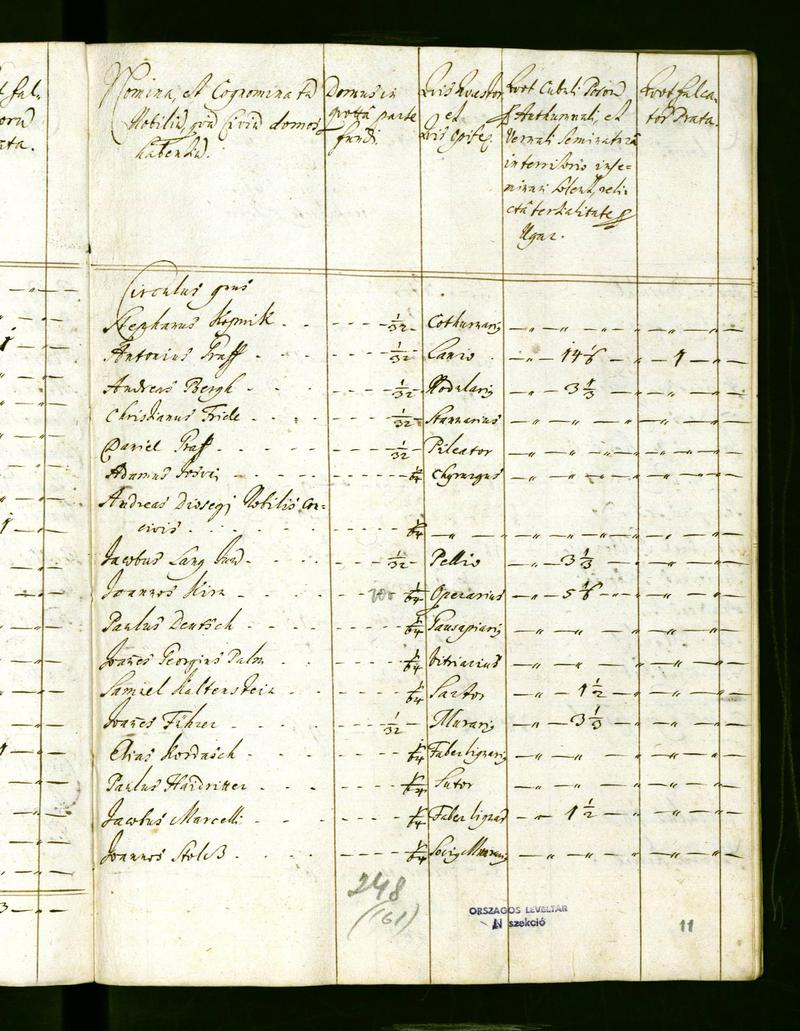 Nomina, et Cognomina
Nobiliū, Civiū domos
habentiū.
Domus in
quota parte
fundi.
Quis Quæstor
et
Quis Opifex
Quot Cubuli Poson
Authumnali, et
Vernali Seminatura
in territorio inse-
minari solent, reli-
cta tertialitate
Ugar.
Quot falca-
tor Prata.
Circulus 9nus
Stephanus Kepnik 1/32 Cothurnari9 — " — " — " — " —
Antonius Graff 1/32 Lanio — " — 14 1/6 — " — 1 — " —
Andreas Bergh 1/32 Nodulari9 — " — 3 1/3 — " — " — " —
Christianus Fride 1/32 Stannarius — " — " — " — " — " —
Daniel Graff 1/32 Pileator — " — " — " — " — " —
Adamus 1/64 Chyrurgus — " — " — " — " — " —
Andreas Dissegj Nobilis con=
civis 1/64 — " — " — " — " — " —
Jacobus Lang Jun 1/32 Pellio — " — 3 1/3 — " — " — " —
Joannes Kirn 1/64 Operarius — " — 5 1/6 — " — " — " —
Paulus Deutsch 1/64 Gausapiari9 — " — " — " — " — " —
Joañes Georgius Palm 1/64 Vitriarius — " — " — " — " — " —
Samuel Kaltenstein 1/64 Sartor — " — 1 1/2 — " — " — " —
Joañes Führer 1/32 Murari9 — " — 3 1/3 — " — " — " —
Elias Kordasch 1/64 Faber lignari9 — " — " — " — " — " —
Paulus Haidritter 1/64 Sutor — " — " — " — " — " —
Jacobus Marcelli 1/64 Faber lignari — " — 1 1/2 — " — " — " —
Joannes Stolß 1/64 Socig Murari9 — " — " — " — " — " —
248
(161)
ORSZAGOS LEVELTAR
N szekció
11